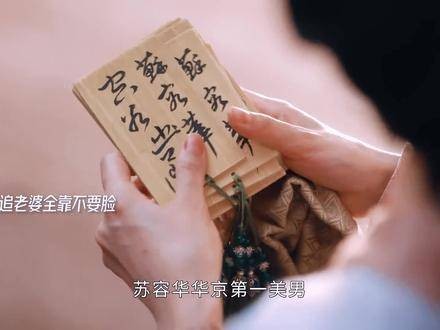 蘇容華
蘇容華
追老婆全靠不要脸
苏容华华京第一美男